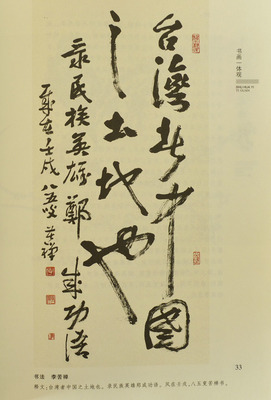 书画一体观
台灣者中國
之土地也
录民族英雄鄭成功语
歲在壬戌八五叟苦禅
33
书法 李苦禅
释文：台湾者中国之土地也。录民族英雄郑成功语。岁在壬戌，八五叟苦禅书。